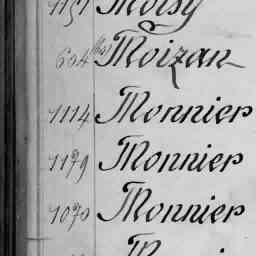 1151 Moisy
604 (bis) Moizan
1114 Monnier
1179 Monnier
1070 Monnier